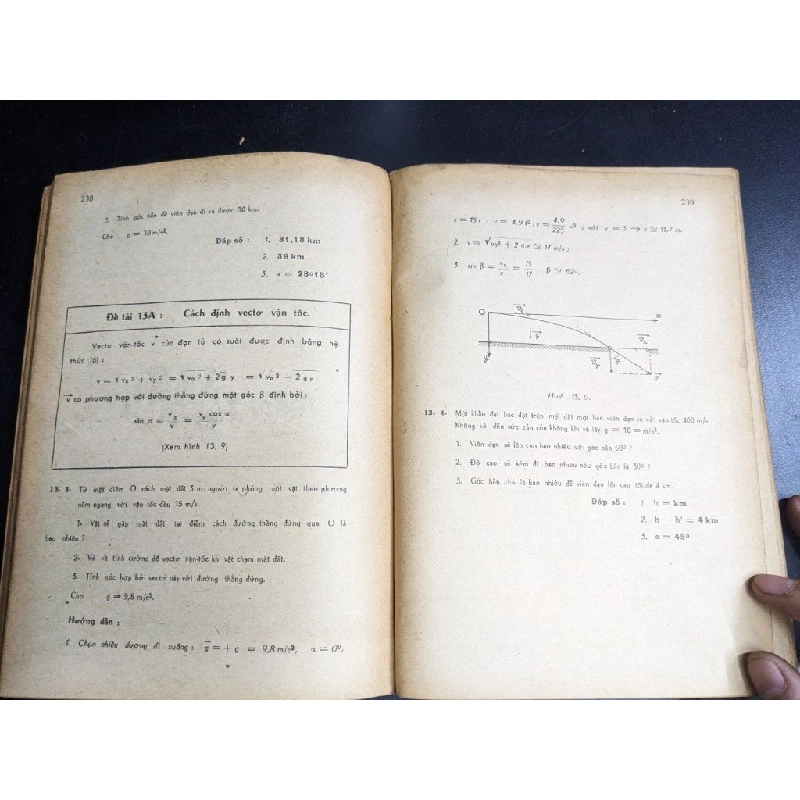 238
3. Tính góc bắn để viên đạn đi xa được 30 km.
Cho g = 10 m/s².
Đáp số : 1. 81,18 km
2. 38 km
3. α = 26º18'
Đề tài 13A : Cách định vectơ vận tốc.
Vectơ vận-tốc v của đạn là có suất được định bằng hệ
thức (6) :
v có phương hợp với đường thẳng đứng một góc β định bởi :
(Xem hình 13, 9)
13. 3. Từ một điểm O cách mặt đất 5 m người ta phóng một vật theo phương
nằm ngang với vận tốc đầu 15 m/s.
1. Vật sẽ gặp mặt đất tại điểm cách đường thẳng đứng qua O là
bao nhiêu ?
2. Vẽ và tính cường độ vectơ vận-tốc khi vật chạm mặt đất.
3. Tính góc hợp bởi vectơ này với đường thẳng đứng.
Cho g = 9,8 m/s².
Hướng dẫn :
1. Chọn chiều dương đi xuống : g = + g = 9,8 m/s², α = 0º,
239
x = 15t ; y = 4,9 t² ; y = 4,9/225 x², với y = 5 → x ≅ 15,7 m.
3. sin β = vx/v = 15/17
O
x
Hình 13, 9.
13. 4. Một khẩu đại bác đặt trên mặt đất một bắn viên đạn ra với vận-tốc 400 m/s.
Không có đến sức cản của không khí và lấy g = 10 m/s².
1. Viên đạn sẽ lên cao bao nhiêu với góc bắn
2. Độ cao sẽ kém đi bao nhiêu nếu góc bắn là 30º ?
3. Góc bắn phải là bao nhiêu để viên đạn lên cao tối-đa 4 km.
Đáp số : 1. h = km
2. h h' = 4 km
3. α = 45º